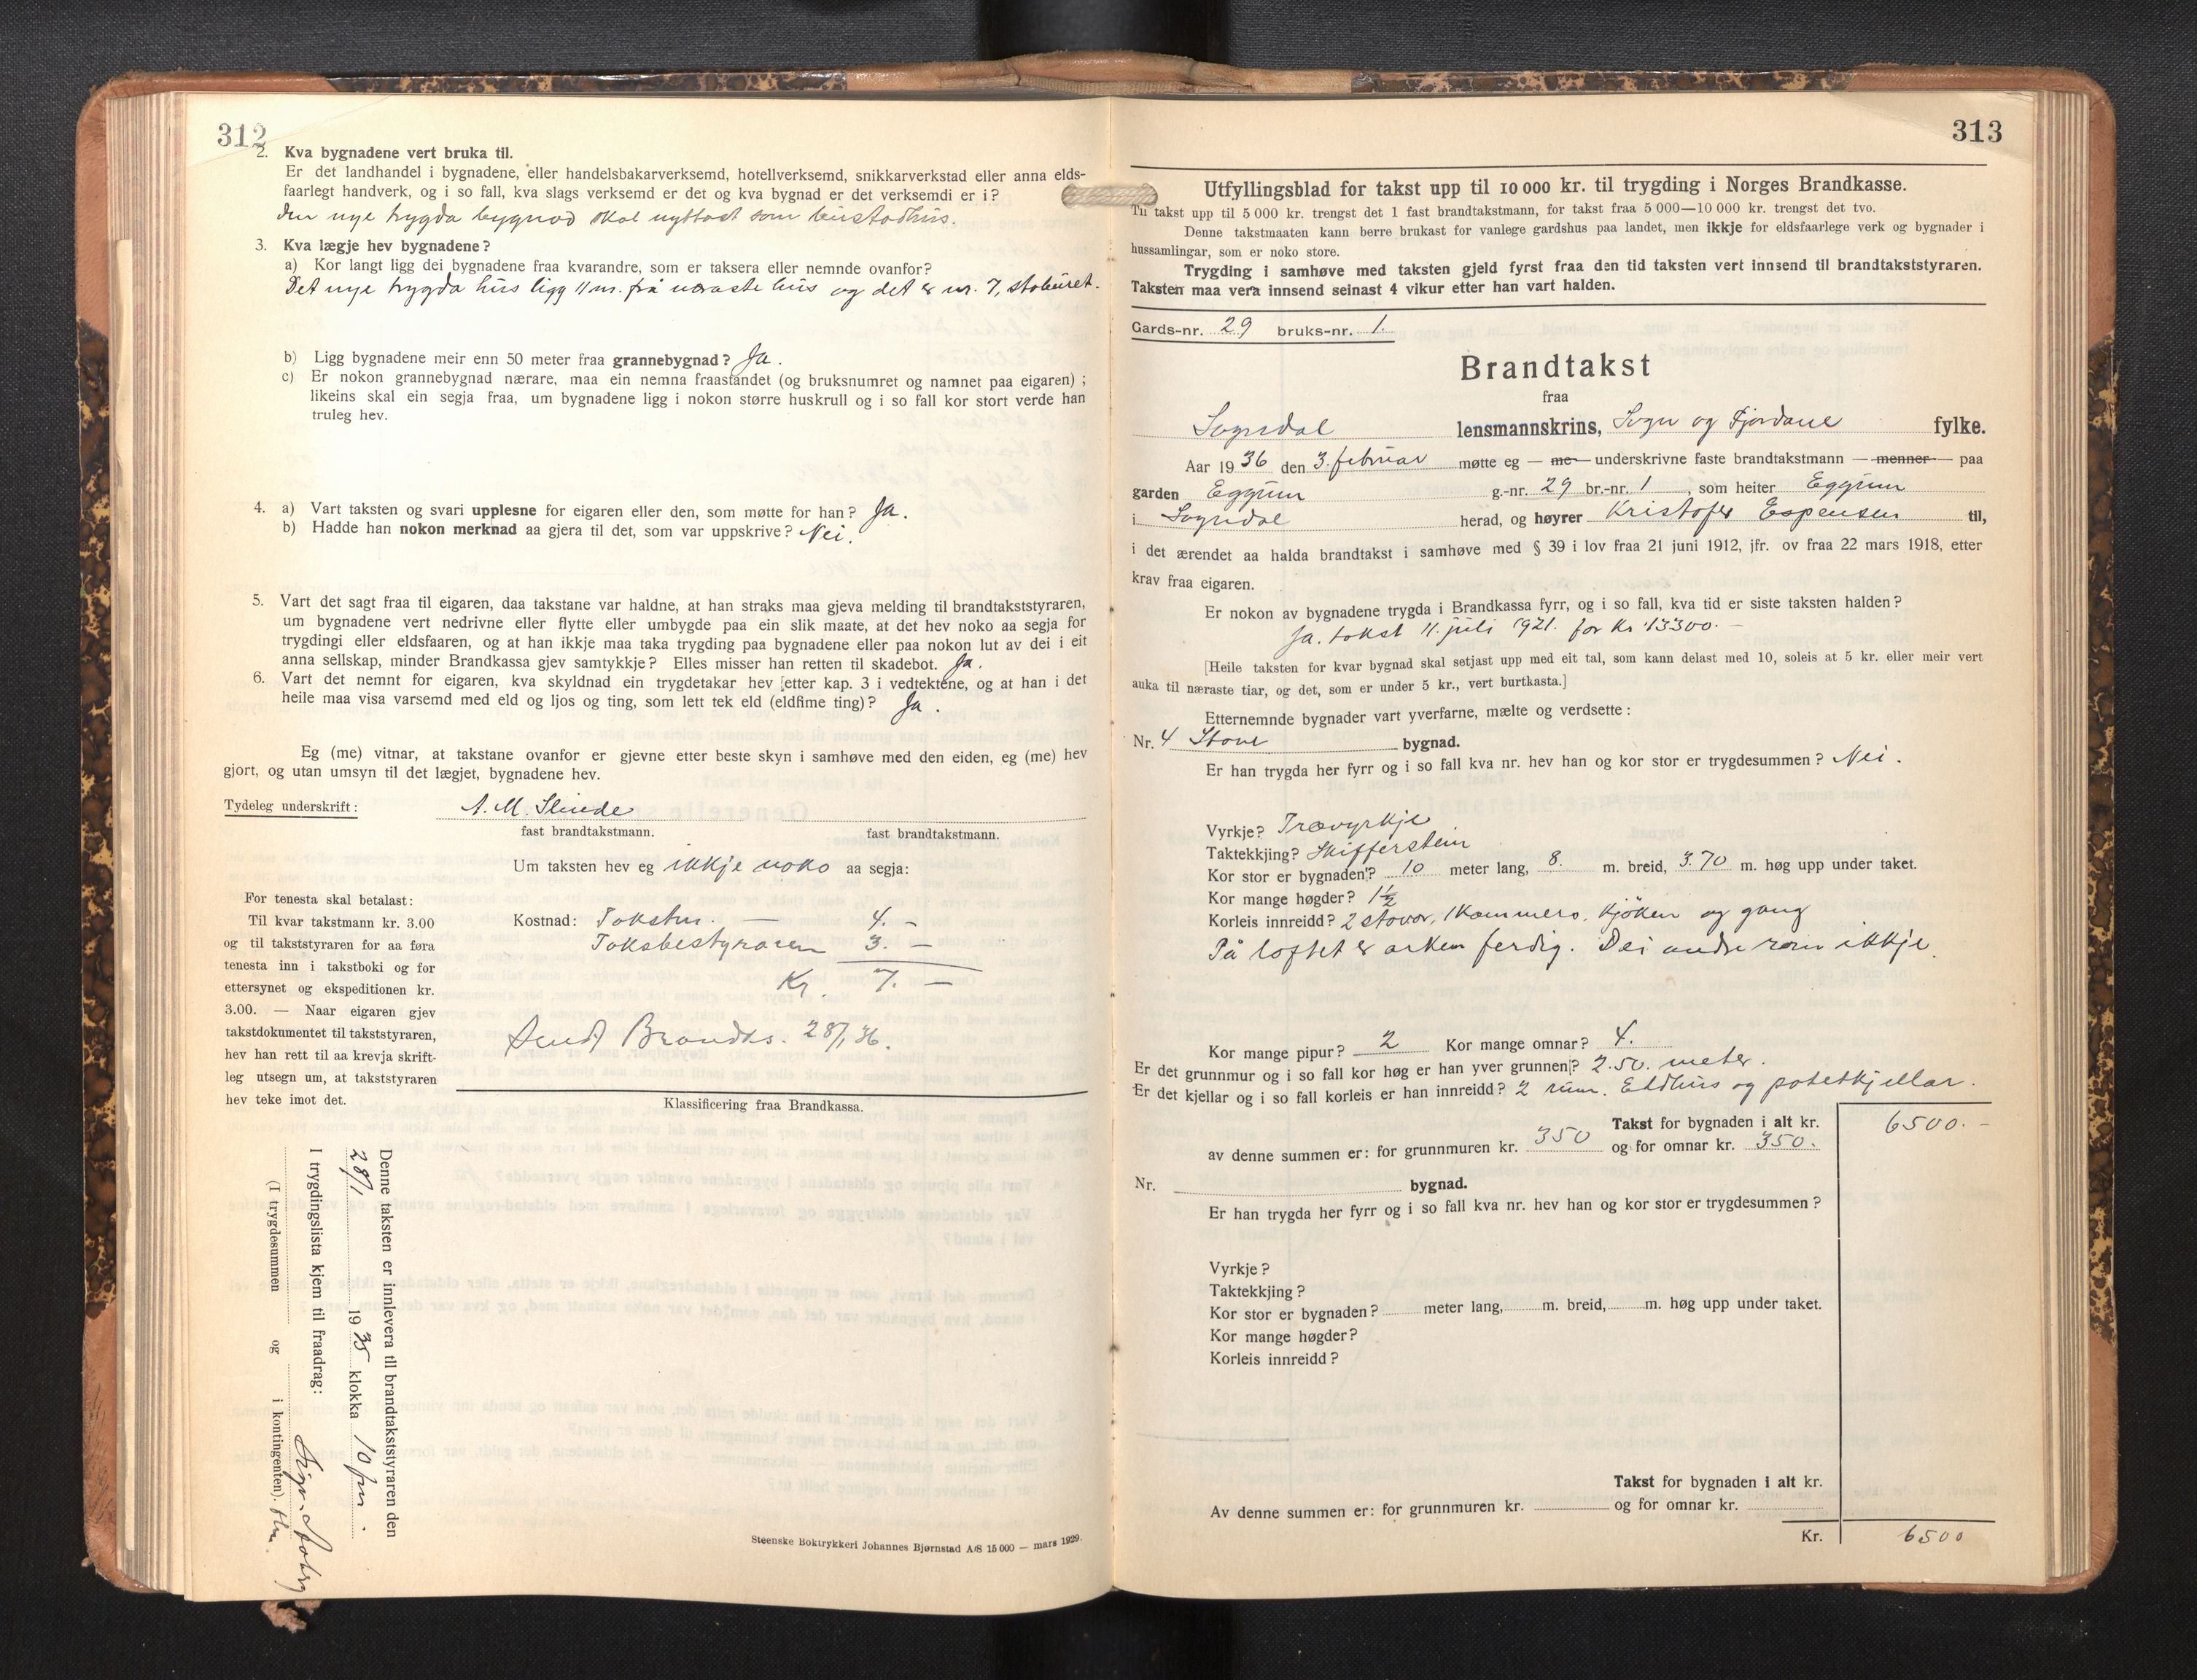 312
2. Kva bygnadene vert bruka til.
Er det landhandel i bygnadene, eller handelsbakarverksemd, hotellverksemd, snikkarverkstad eller anna elds-
faarlegt handverk, og i so fall, kva slags verksemd er det og kva bygnad er det verksemdi er i?
Den nye trygda bygnad skal nyttast som bustadhus.
3. Kva lægje hev bygnadene?
a) Kor langt ligg dei bygnadene fraa kvarandre, som er taksera eller nemnde ovanfor?
Det nye trygda hus ligg 11 m. frå næraste hus og det er nr. 7, stoburet.
b) Ligg bygnadene meir enn 50 meter fraa grannebygnad? Ja.
c) Er nokon grannebygnad nærare, maa ein nemna fraastandet (og bruksnumret og namnet paa eigaren) ;
likeins skal ein segja fraa, um bygnadene ligg i nokon større huskrull og i so fall kor stort verde han
truleg hev.
4. a) Vart taksten og svari upplesne for eigaren eller den, som møtte for han? Ja.
b) Hadde han nokon merknad aa gjera til det, som var uppskrive? Nei.
5. Vart det sagt fraa til eigaren, daa takstane var haldne, at han straks maa gjeva melding til brandtakststyraren,
um bygnadene vert nedrivne eller flytte eller umbygde paa ein slik maate, at det hev noko aa segja for
trygdingi eller eldsfaaren, og at han ikkje maa taka trygding paa bygnadene eller paa nokon lut av dei i eit
anna sellskap, minder Brandkassa gjev samtykkje? Elles misser han retten til skadebot. Ja.
6. Vart det nemnt for eigaren, kva skyldnad ein trygdetakar hev [etter kap. 3 i vedtektene, og at han i det
heile maa visa varsemd med eld og ljos og ting, som lett tek eld (eldfime ting)? Ja.
Eg (me) vitnar, at takstane ovanfor er gjevne etter beste skyn i samhøve med den eiden, eg (me) hev
gjort, og utan umsyn til det lægjet, bygnadene hev.
Tydeleg underskrift: A. M. Slinde
fast brandtakstmann. fast brandtakstmann.
Um taksten hev eg ikkje noko aa segja:
For tenesta skal betalast:
Til kvar takstmann kr. 3.00
og til takststyraren for aa føra
tenesta inn i takstboki og for
ettersynet og ekspeditionen kr.
3.00. — Naar eigaren gjev
takstdokumentet til takststyraren,
hev han rett til aa krevja skrift-
leg utsegn um, at takststyraren
hev teke imot det.
Kostnad: Takstm. — 4. -
Taksbestyraren 3. —
Kr. 7. —
Sendt Brandks. 28/1 36.
Klassificering fraa Brandkassa.
Denne taksten er innlevera til brandtakststyraren den
28/1 1935 klokka 10 fm.
I trygdingslista kjem til fraadrag:
(I trygdesummen og i kontingenten).
Steenske Boktrykkeri Johannes Bjørnstad A/S 15 000 — mars 1929.
313
Utfyllingsblad for takst upp til 10 000 kr. til trygding i Norges Brandkasse.
Til takst upp til 5 000 kr. trengst det 1 fast brandtakstmann, for takst fraa 5 000—10 000 kr. trengst det tvo.
Denne takstmaaten kann berre brukast for vanlege gardshus paa landet, men ikkje for eldsfaarlege verk og bygnader i
hussamlingar, som er noko store.
Trygding i samhøve med taksten gjeld fyrst fraa den tid taksten vert innsend til brandtakststyraren.
Taksten maa vera innsend seinast 4 vikur etter han vart halden.
Gards-nr. 29 bruks-nr. 1.
Brandtakst
fraa
Sogndal lensmannskrins, Sogn og Fjordane fylke.
Aar 1936 den 3. februar møtte eg — me — underskrivne faste brandtakstmann — menner — paa
garden Eggum g.-nr. 29 br.-nr. 1, som heiter Eggum
i Sogndal herad, og høyrer Kristofer Espensen til,
i det ærendet aa halda brandtakst i samhøve med § 39 i lov fraa 21 juni 1912, jfr. ov fraa 22 mars 1918, etter
krav fraa eigaren.
Er nokon av bygnadene trygda i Brandkassa fyrr, og i so fall, kva tid er siste taksten halden?
Ja. takst 11. juli 1921. for Kr 13300. -
[Heile taksten for kvar bygnad skal setjast upp med eit tal, som kann delast med 10, soleis at 5 kr. eller meir vert
auka til næraste tiar, og det, som er under 5 kr., vert burtkasta.]
Etternemnde bygnader vart yverfarne, mælte og verdsette :
Nr. 4 Stove bygnad.
Er han trygda her fyrr og i so fall kva nr. hev han og kor stor er trygdesummen? Nei.
Vyrkje? Trævyrkje
Taktekkjing? Skifferstein
Kor stor er bygnaden? 10 meter lang, 8. m. breid, 3.70 m. høg upp under taket.
Kor mange høgder? 1½
Korleis innreidd? 2 stovor, 1 kammers, kjøken og gang
På loftet er arken ferdig. Dei andre rom ikkje.
Kor mange pipur? 2 Kor mange omnar? 4.
Er det grunnmur og i so fall kor høg er han yver grunnen? 2.50. meter.
Er det kjellar og i so fall korleis er han innreidd? 2 rum. Eldhus og potetkjellar.
Takst for bygnaden i alt kr. 6500. -
av denne summen er: for grunnmuren kr. 350 og for omnar kr. 350.
Nr. bygnad.
Er han trygda her fyrr og i so fall kva nr. hev han og kor stor er trygdesummen?
Vyrkje?
Taktekkjing?
Kor stor er bygnaden? meter lang, m. breid, m. høg upp under taket.
Kor mange høgder?
Korleis innreidd?
Takst for bygnaden i alt kr.
Av denne summen er: for grunnmuren kr. og for omnar kr.
Kr. 6500